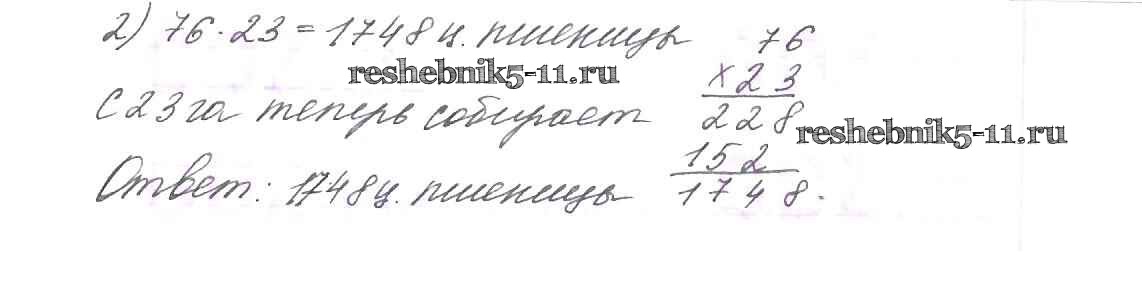 2) 76·23=1748 ц. пшеницы 76
reshebnik5-11.ru
×23
с 23 га теперь собирает 228
reshebnik5-11.ru
152
Ответ: 1748 ц. пшеницы 1748.